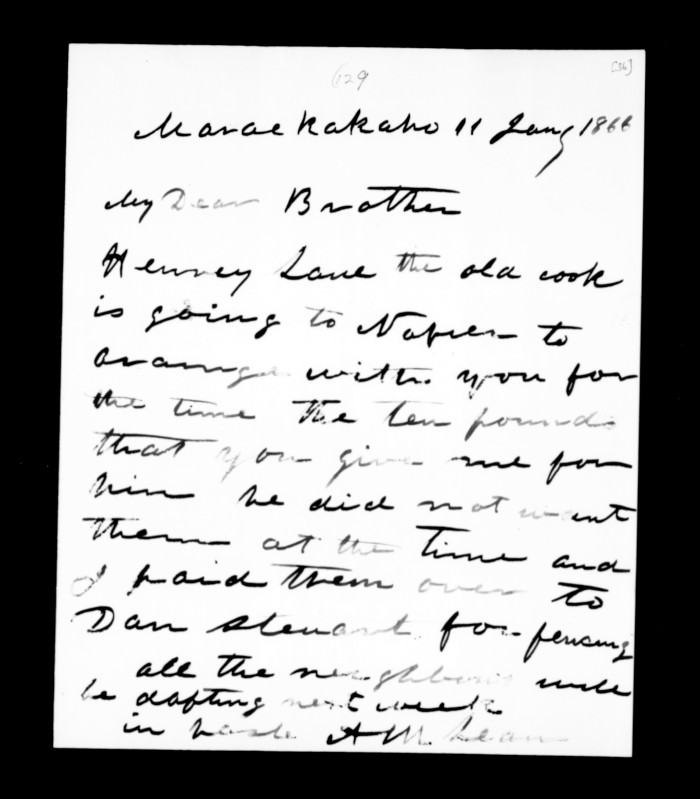 129
[36]
Maraekakaho 11 Jany 1866
My Dear Brother
Henrey Lane the old cook
is going to Napier to
arange with you for
the time the ten pounds
that you give me for
him he did not want
them at the time and
I paid them over to
Dan Steuart for fencing
all the neighbours will
be dafting next week
in haste A M. Lean